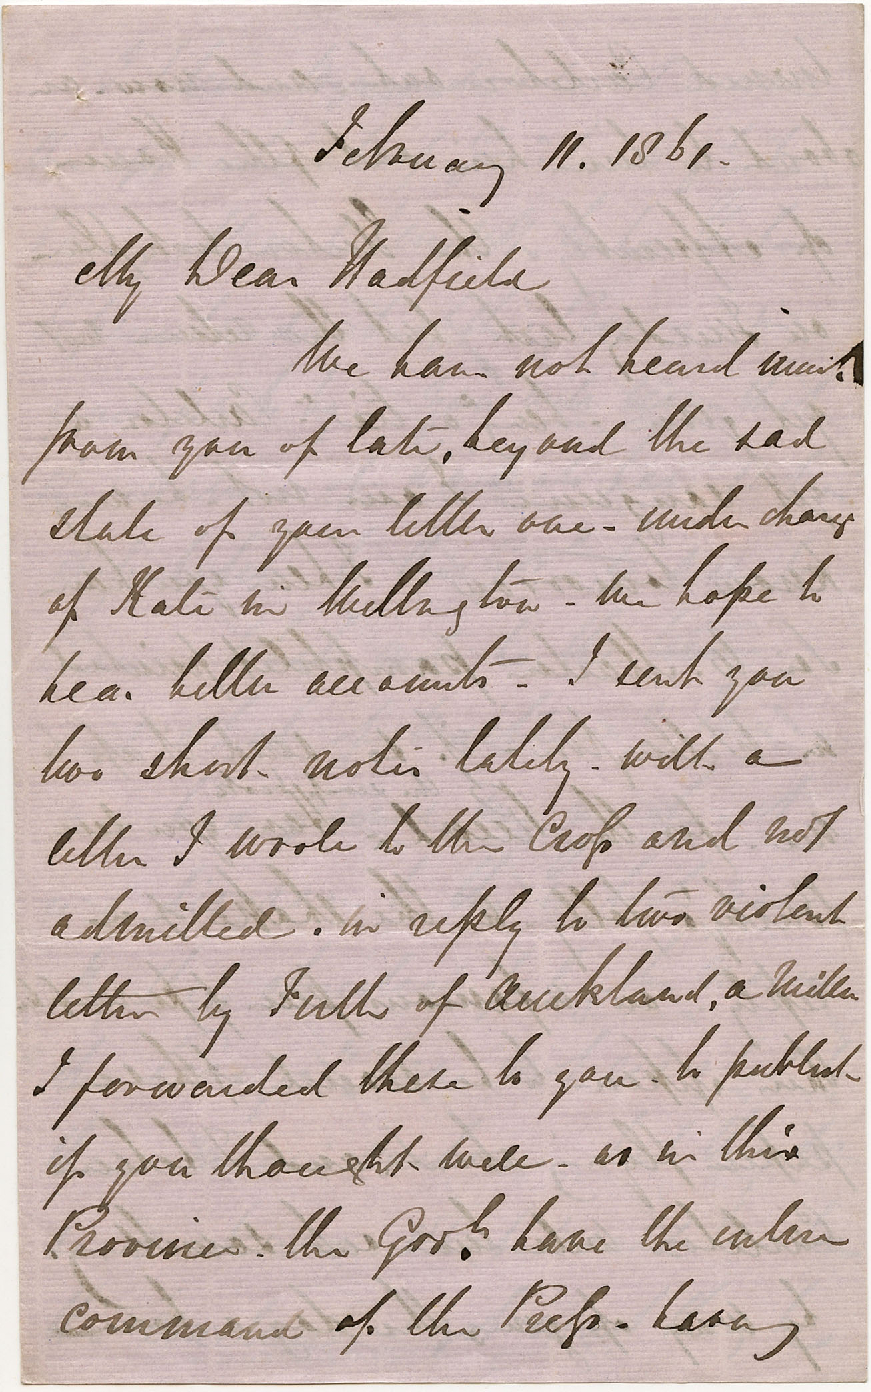 February 11. 1861.
My Dear Hadfield
We have not heard much
from you of late, beyond the sad
state of your little one - under charge
of Kate in Wellington - we hope to
hear better accounts - I sent you
two short notes lately - with a
letter I wrote to the Cross and not
admitted. in reply to two violent
letters by Firth of Auckland, a Miller
I forwarded these to you to publish
if you thought well - as in this
Province - the Govt. have the entire
command of the Press - having